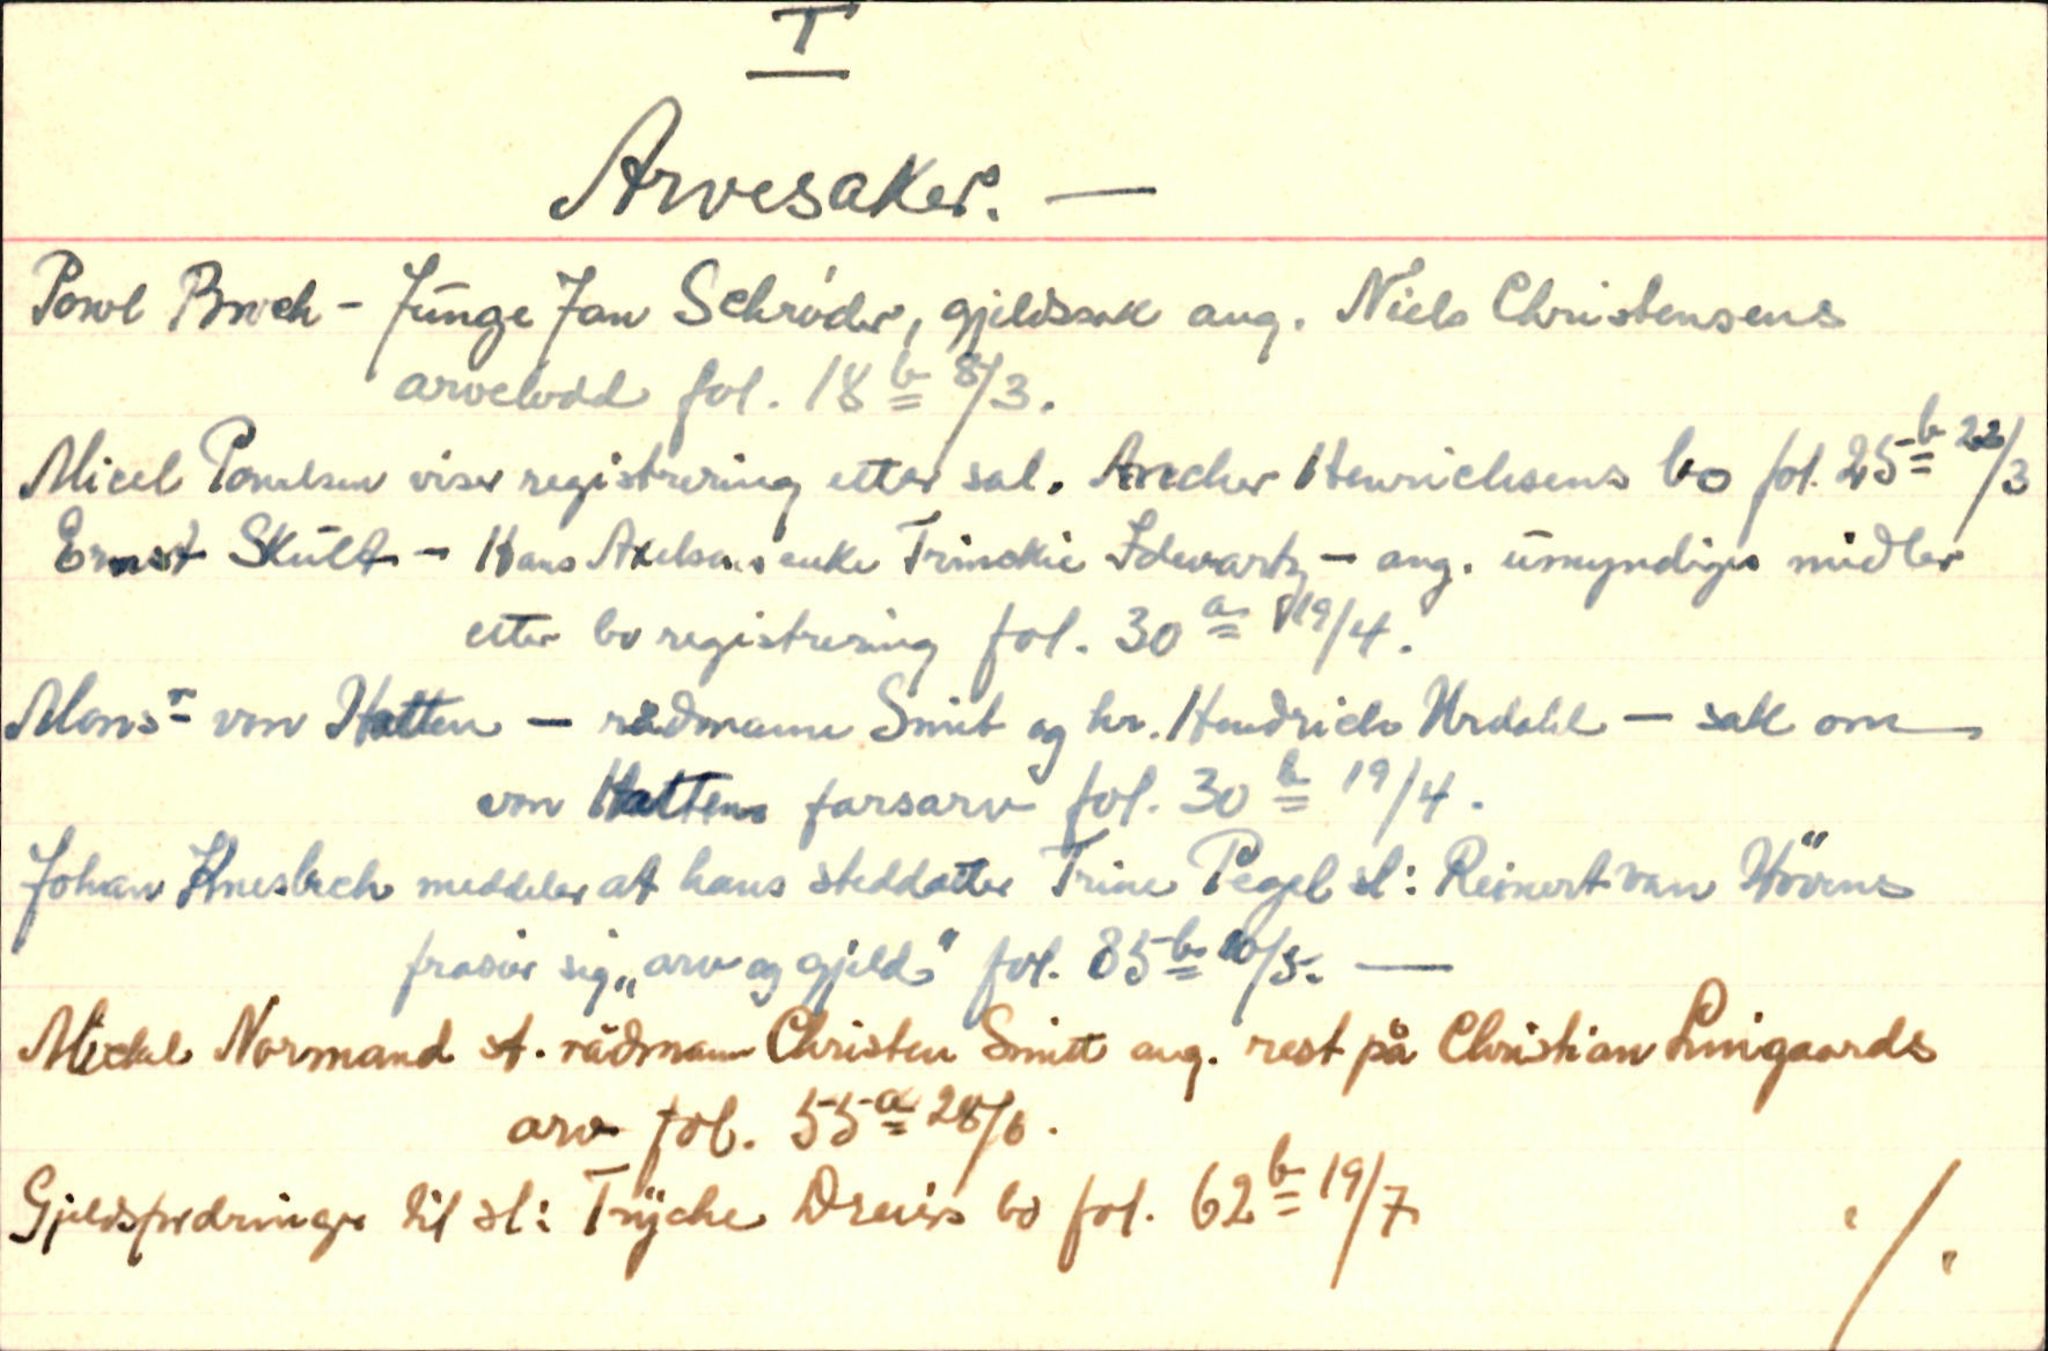 I
Arvesaker. —
Powl Bwch - Junge Jan Schröder, gjeldssak ang. Niels Christensens
arvelodd fol. 18 b 8/3.
Micel Powelsen viser registrering etter sal. Anecher Henrichsens bo fol. 25 b 22/3
Ernst Skult - Hans Axelsens enke Trinckie - ang. umyndiges midler
etter bo registrering fol. 30 a 19/4.
Monsr von Hatten — rådmann Smit og hr. Hendrich Urdahl — sak om
von Hattens farsarv fol. 30 b 19/4.
Johan meddeler at hans steddatter Trine Pegel sl: Reinert van
frasier sig „arv og gjeld" fol. 85 b 10/5. —
Mickel Normand st. rådmann Christen Smit ang. rest på Christian Lingaards
arv fol. 55 a 28/6.
Gjeldsfordringer til sl: Trÿche Dreiers bo fol. 62 b 19/7
./.